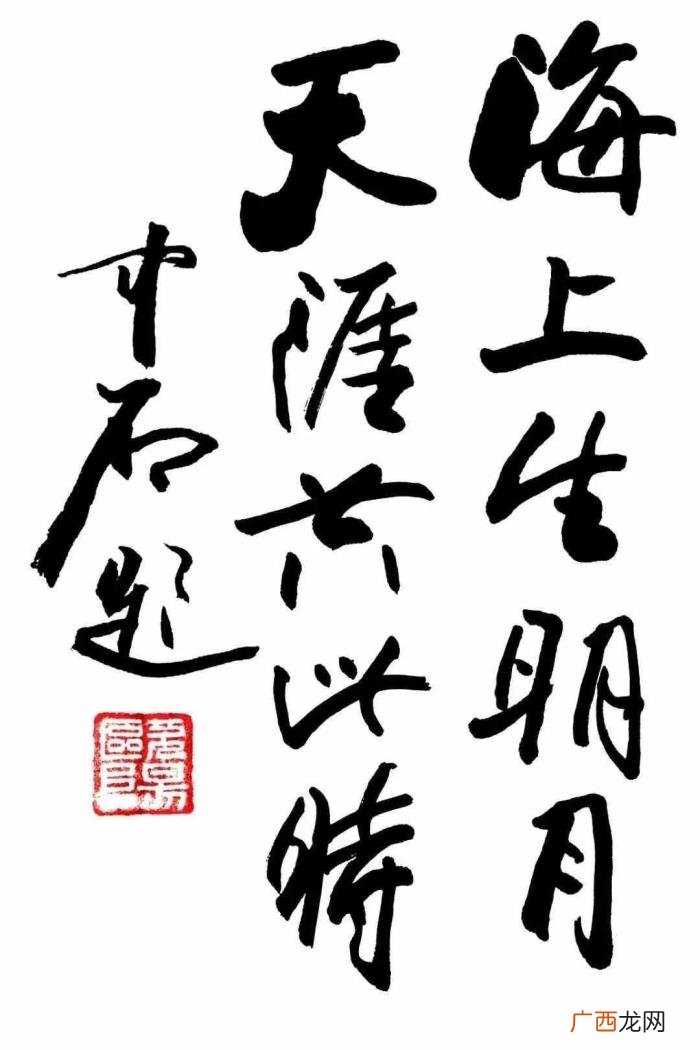 海上生明月
天涯共此时
中石题
广西龙网